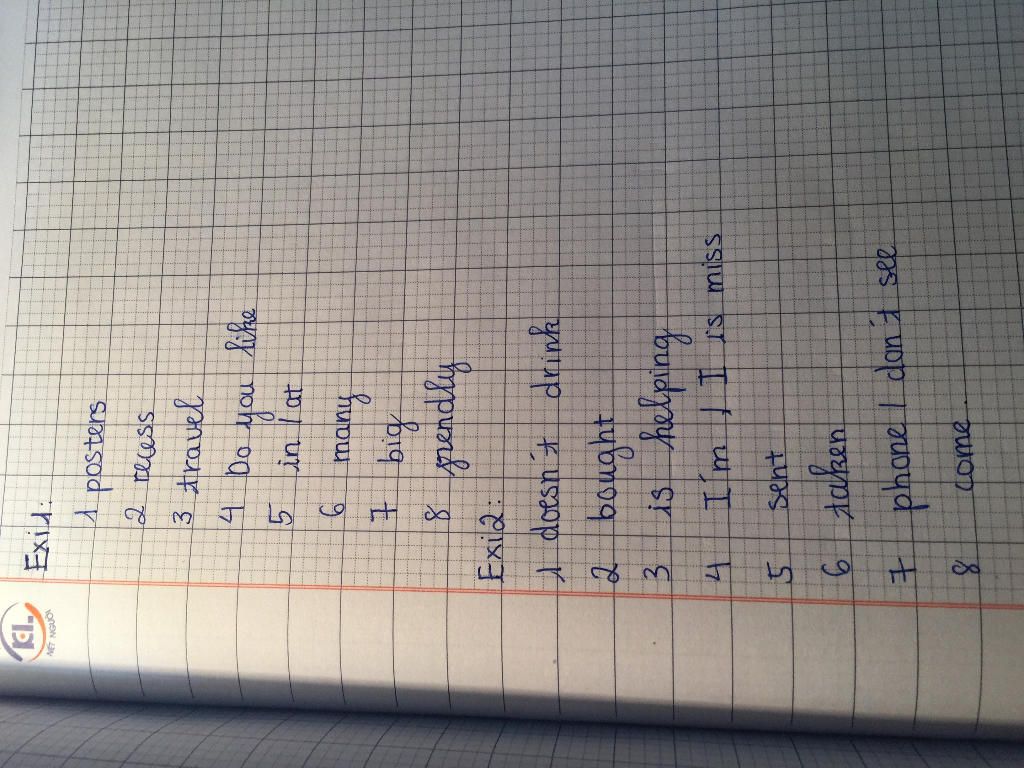 KL
NÉT NGƯỜI
Exi1:
1 posters
2 recess
3 travel
4 Do you like
5 in / at
6 many
7 big
8 spendly
Exi2:
1 doesn't drink
2 bought
3 is helping
4 I'm / I is miss
5 sent
6 taken
7 phone / don't see
8 come.